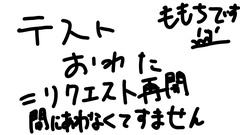 テスト
おわた
=リクエスト再開
間にあわなくてすません
ももちです